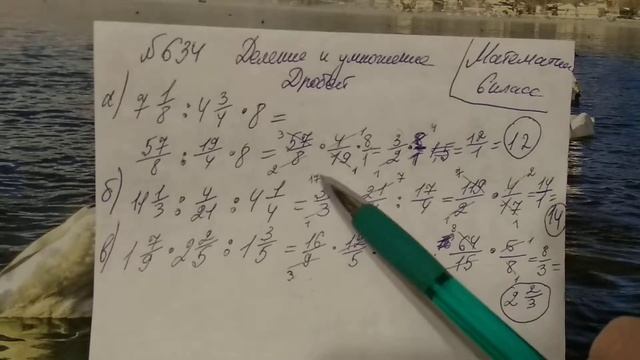 №634 Деление и умножение
Дробей
Математика
6 класс
а) 7 1/8 : 4 3/4 · 8 =
57/8 : 19/4 · 8 = 57/8 · 4/19 · 8/1 = 3/2 · 8/1 = 12/1 = 12
б) 4 1/3 : 4/21 : 4 1/4 = : 17/4 = 119/2 · 4/17 = 14/1 = 14
в) 1 7/9 · 2 2/5 : 1 3/5 = 16/9 · 12/5 64/15 · 5/8 = 8/3 =
2 2/3